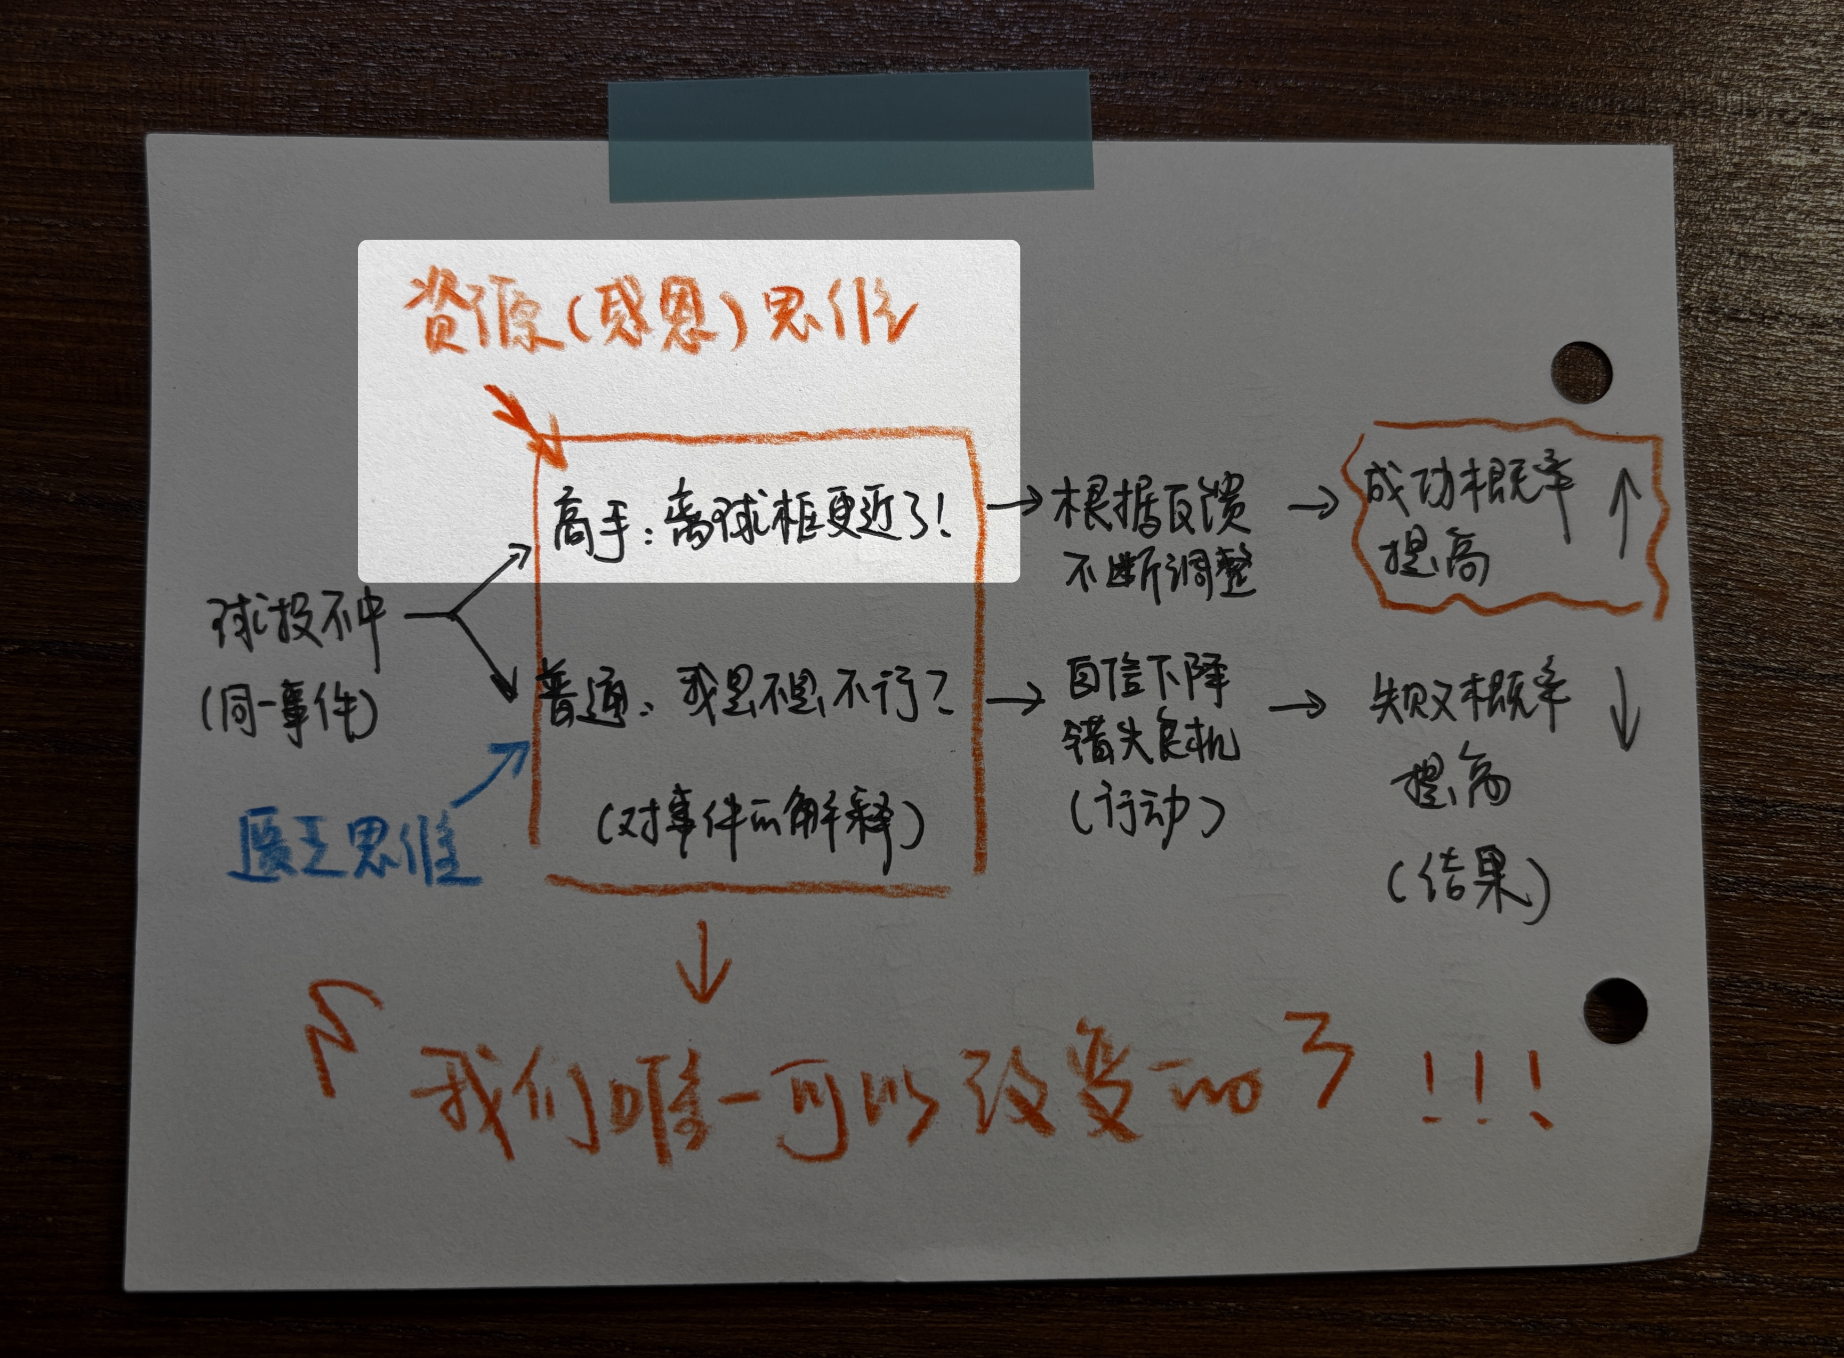 资源(感恩)思维
高手：离球框更近了！
根据反馈
不断调整
成功概率
提高
球投不中
(同一事件)
普通：我是不是不行？
自信下降
错失良机
(行动)
失败概率
提高
(结果)
(对事件的解释)
匮乏思维
「我们唯一可以改变的」!!!